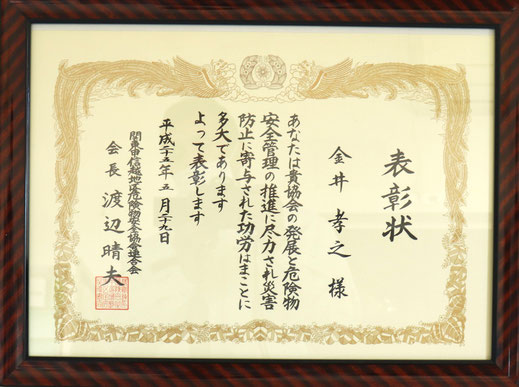 表彰状
金井孝之様
あなたは貴協会の発展と危険物
安全管理の推進に尽力され災害
防止に寄与された功労はまことに
多大であります
よって表彰します
平成二十五年五月二十九日
関東甲信越地区危険物安全協会連合会
会長 渡辺晴夫